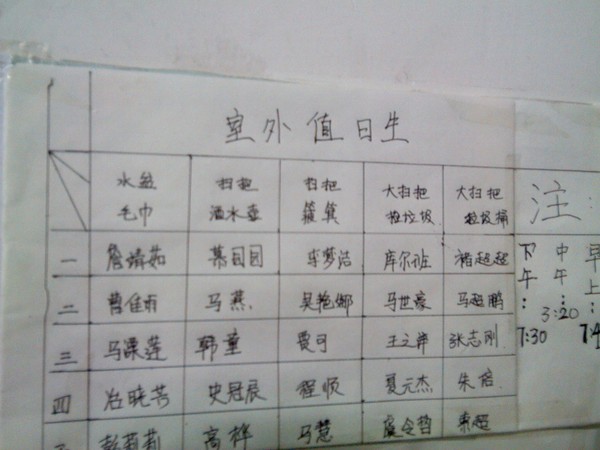 室外值日生
水盆 扫把 扫把 大扫把 大扫把 注:
毛巾 洒水壶 簸箕 捡垃圾 垃圾桶
一 詹婧茹 李梦洁 库尔班 褚超超 下午: 中午: 早上:
二 曹佳雨 马燕 吴艳娜 马世豪 马超鹏 3:20
三 马深莲 韩童 贾可 王之岸 张志刚 7:30
四 冶晓芳 史冠辰 程顺 夏元杰 朱
彭莉莉 高桦 马慧 虞令哲 秉超